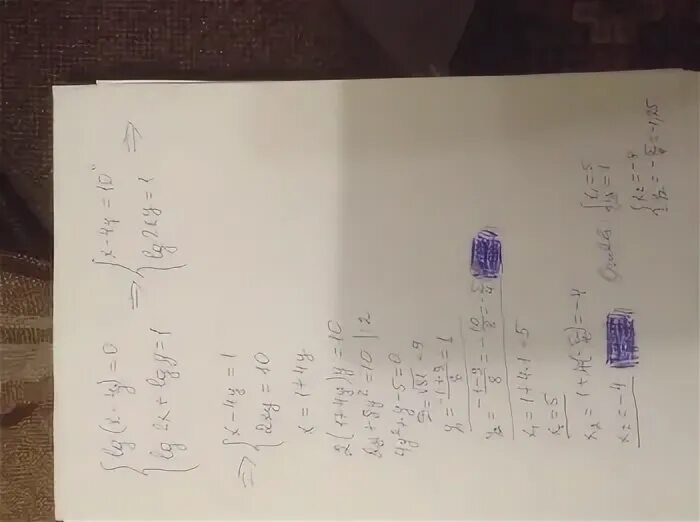 { lg(x-4y)=0
{ lg 2x + lg y = 1
⇒ { x-4y=10⁰
{ lg 2xy = 1 ⇒
⇒ { x-4y=1
{ 2xy=10
x = 1+4y
2(1+4y)y = 10
2y+8y²=10 |:2
4y²+y-5=0
D=√81=9
y₁ = (-1+9)/8 = 1
y₂ = (-1-9)/8 = -10/8 = -5/4
x₁ = 1+4·1=5
x₁=5
x₂ = 1+4(-5/4)=-4
x₂=-4
{ x₁=5
{ y₁=1
{ x₂=-4
{ y₂=-5/4=-1,25